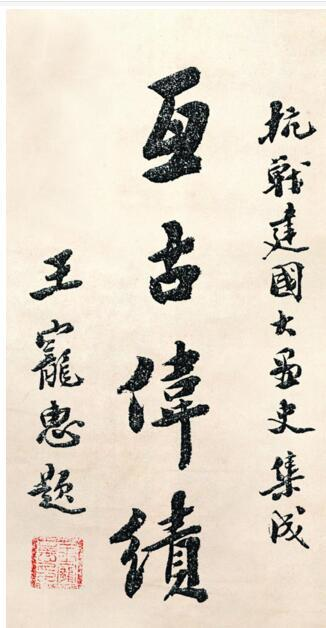 抗戰建國大畫史集成
亙古偉績
王寵惠題